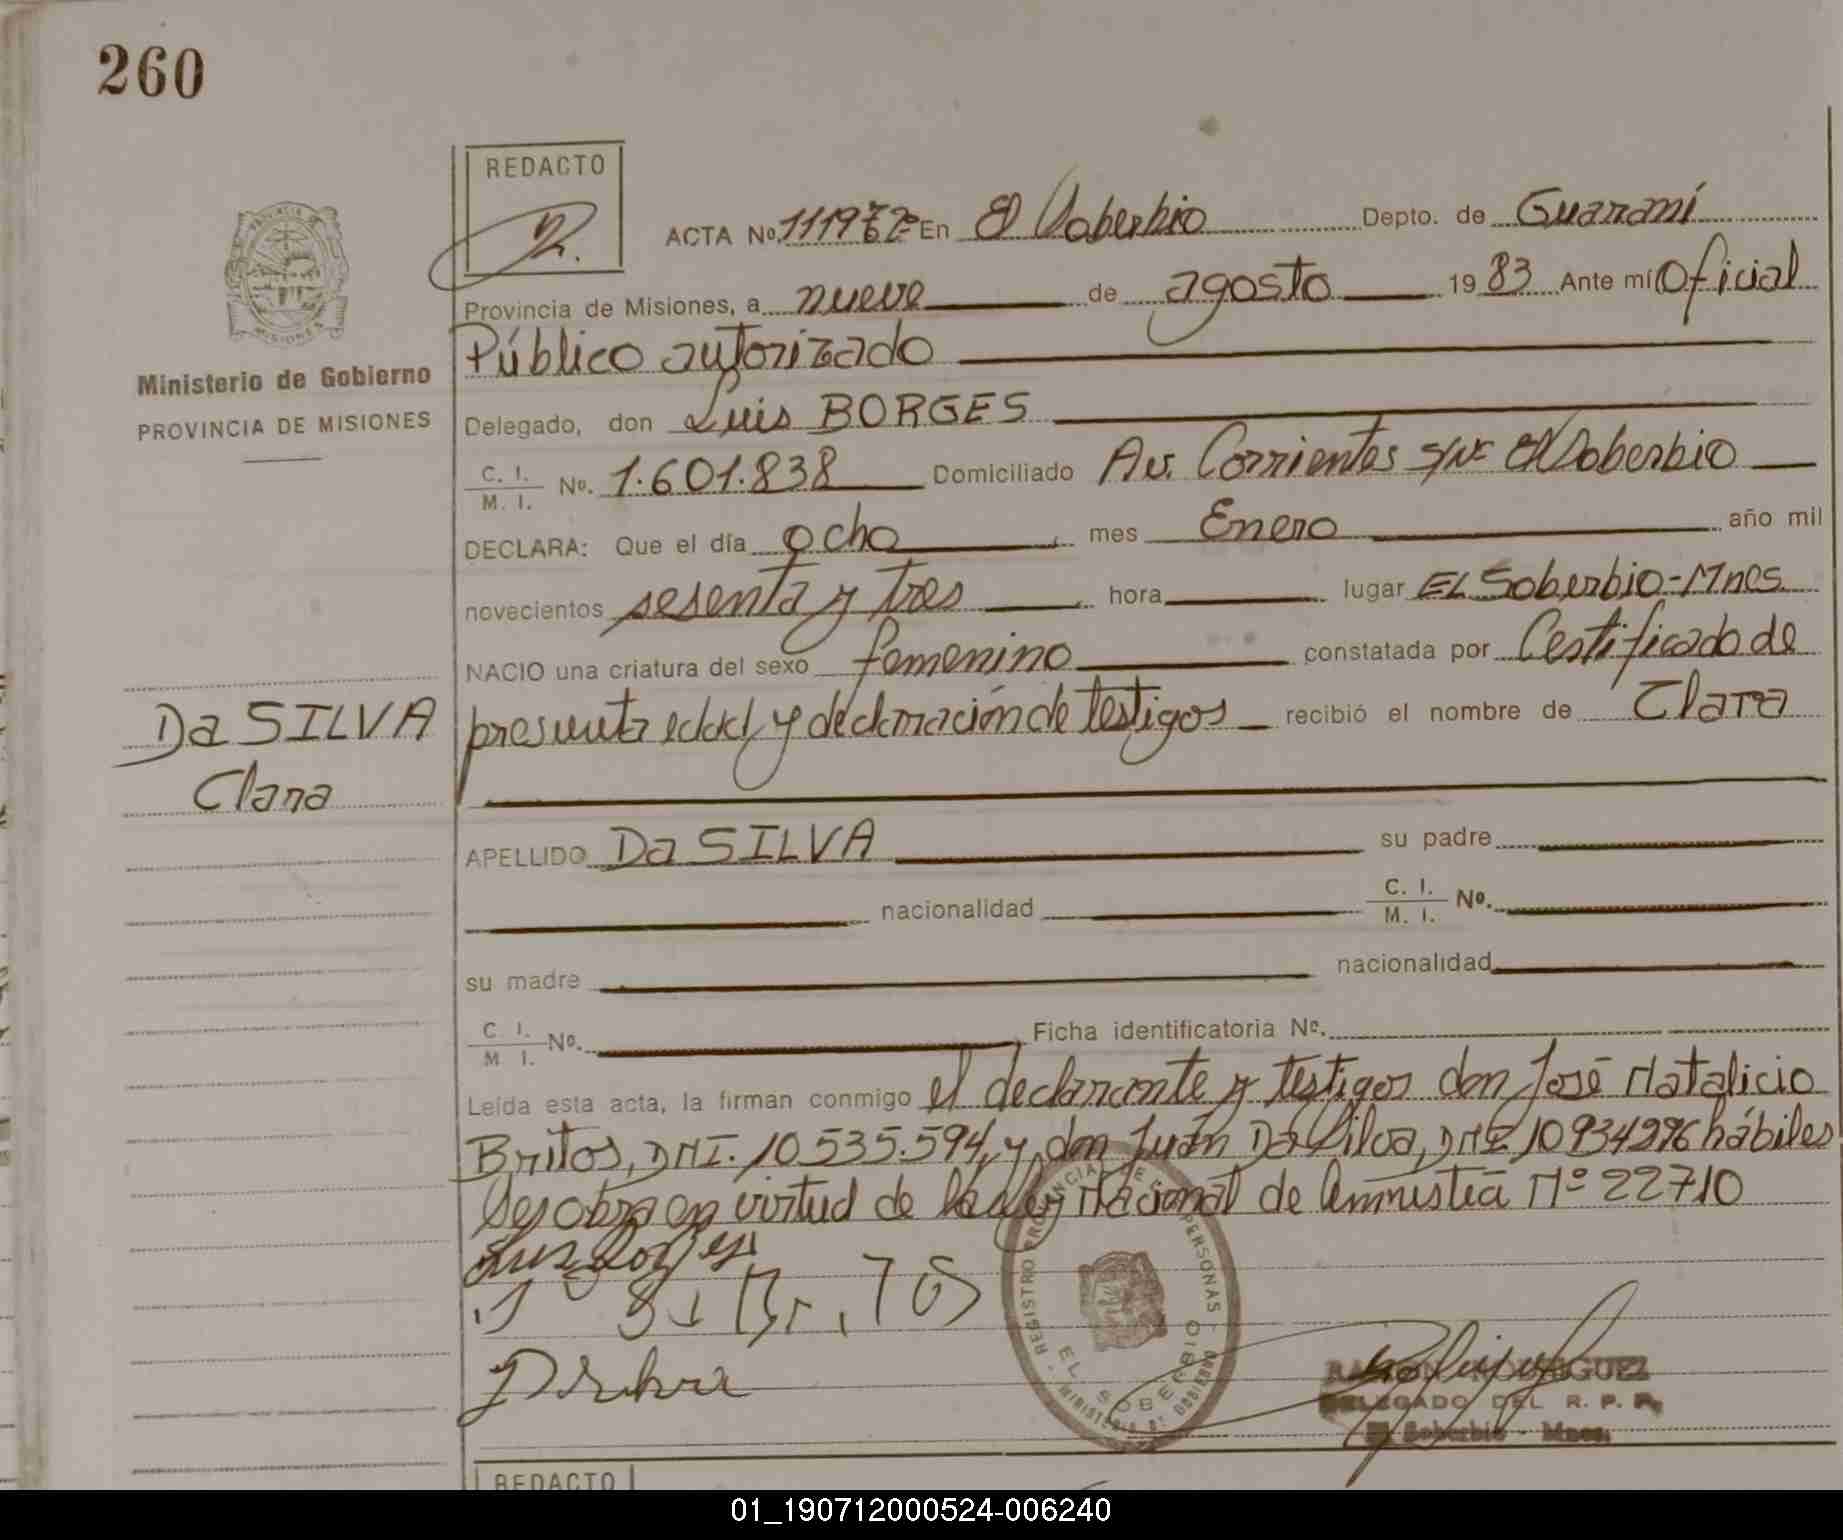 260
REDACTO
ACTA No. En El Soberbio Depto. de Guaraní
Provincia de Misiones, a nueve de agosto 1983 Ante mí Oficial
Público autorizado
Ministerio de Gobierno
PROVINCIA DE MISIONES
Delegado, don Luis BORGES
C. I. / M. I. No. 1.601.838 Domiciliado Av. Corrientes s/nº El Soberbio
DECLARA: Que el día ocho mes Enero año mil
novecientos sesenta y tres hora lugar EL Soberbio-Mnes.
NACIO una criatura del sexo femenino constatada por Certificado de
presunta edad, y declaración de testigos recibió el nombre de Clara
Da SILVA
Clara
APELLIDO Da SILVA su padre
nacionalidad C. I. / M. I. No.
su madre nacionalidad
C. I. / M. I. No. Ficha identificatoria No.
Leída esta acta, la firman conmigo el declarante y testigos don José Natalicio
Britos, DNI. 10.535.594, y don Juán Da Silva, DNI. 10934296 hábiles
en virtud de la Ley Nacional de Amnistía Nº 22710
Luis Borges
REGISTRO PROVINCIAL DE PERSONAS
EL SOBERBIO
MINISTERIO DE GOBIERNO
RAMON RODRIGUEZ
DELEGADO DEL R. P. P.
El Soberbio - Mnes.
REDACTO
01_190712000524-006240